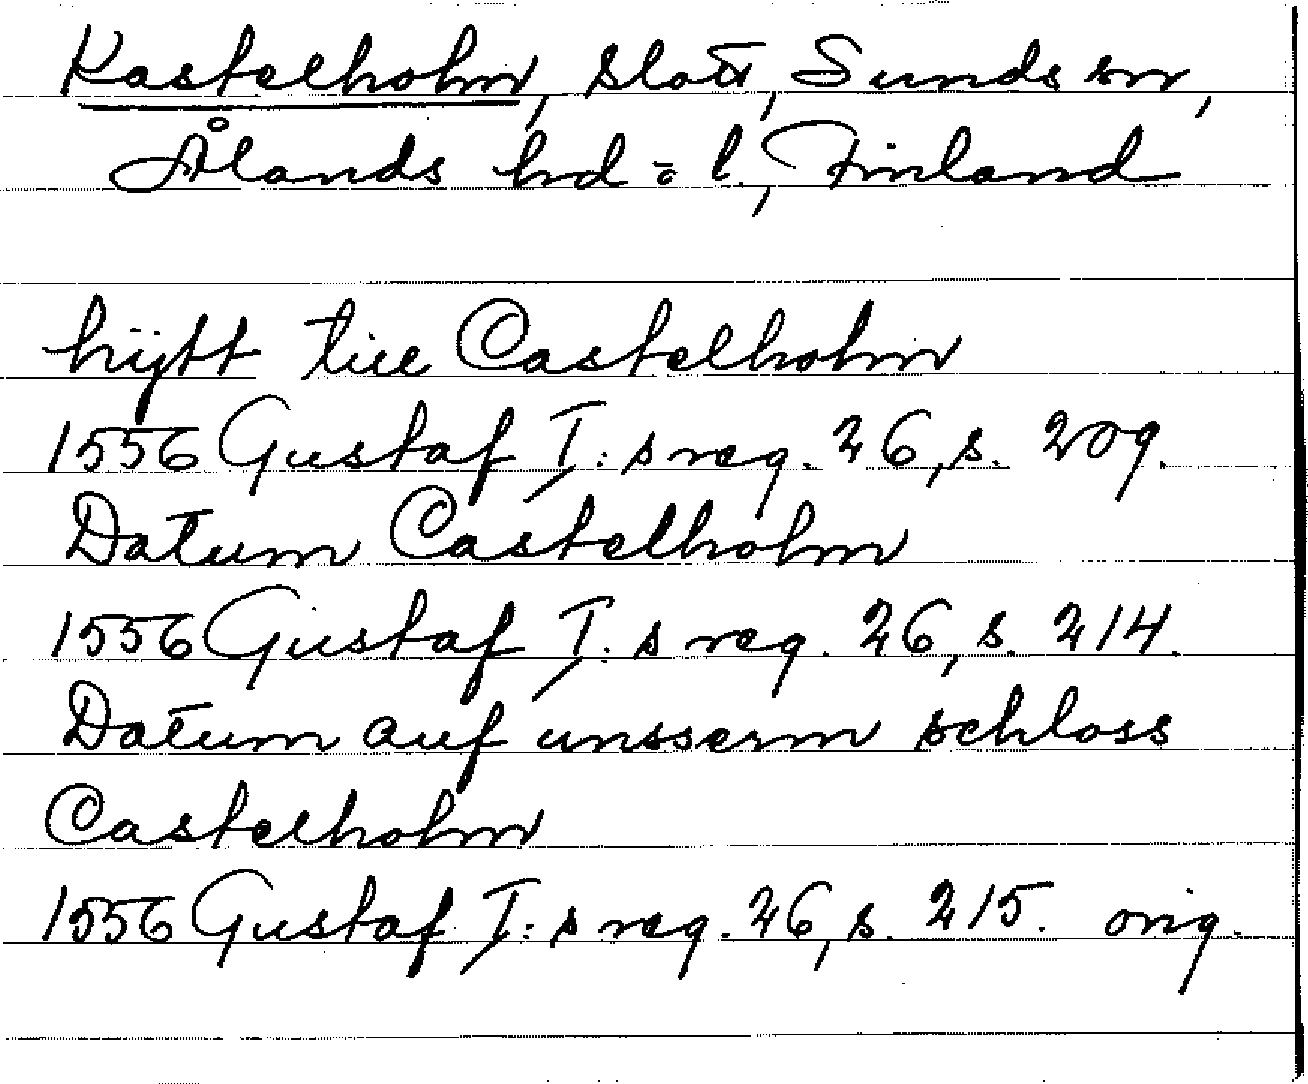 Kastelholm, slott, Sunds sn,
Ålands hd = l., Finland
hijtt till Castelholm
1556 Gustaf I: s reg. 26, s. 209.
Datum Castelholm
1556 Gustaf I: s reg. 26, s. 214.
Datum auf unsserm schloss
Castelholm
1556 Gustaf I: s reg. 26, s. 215. orig.